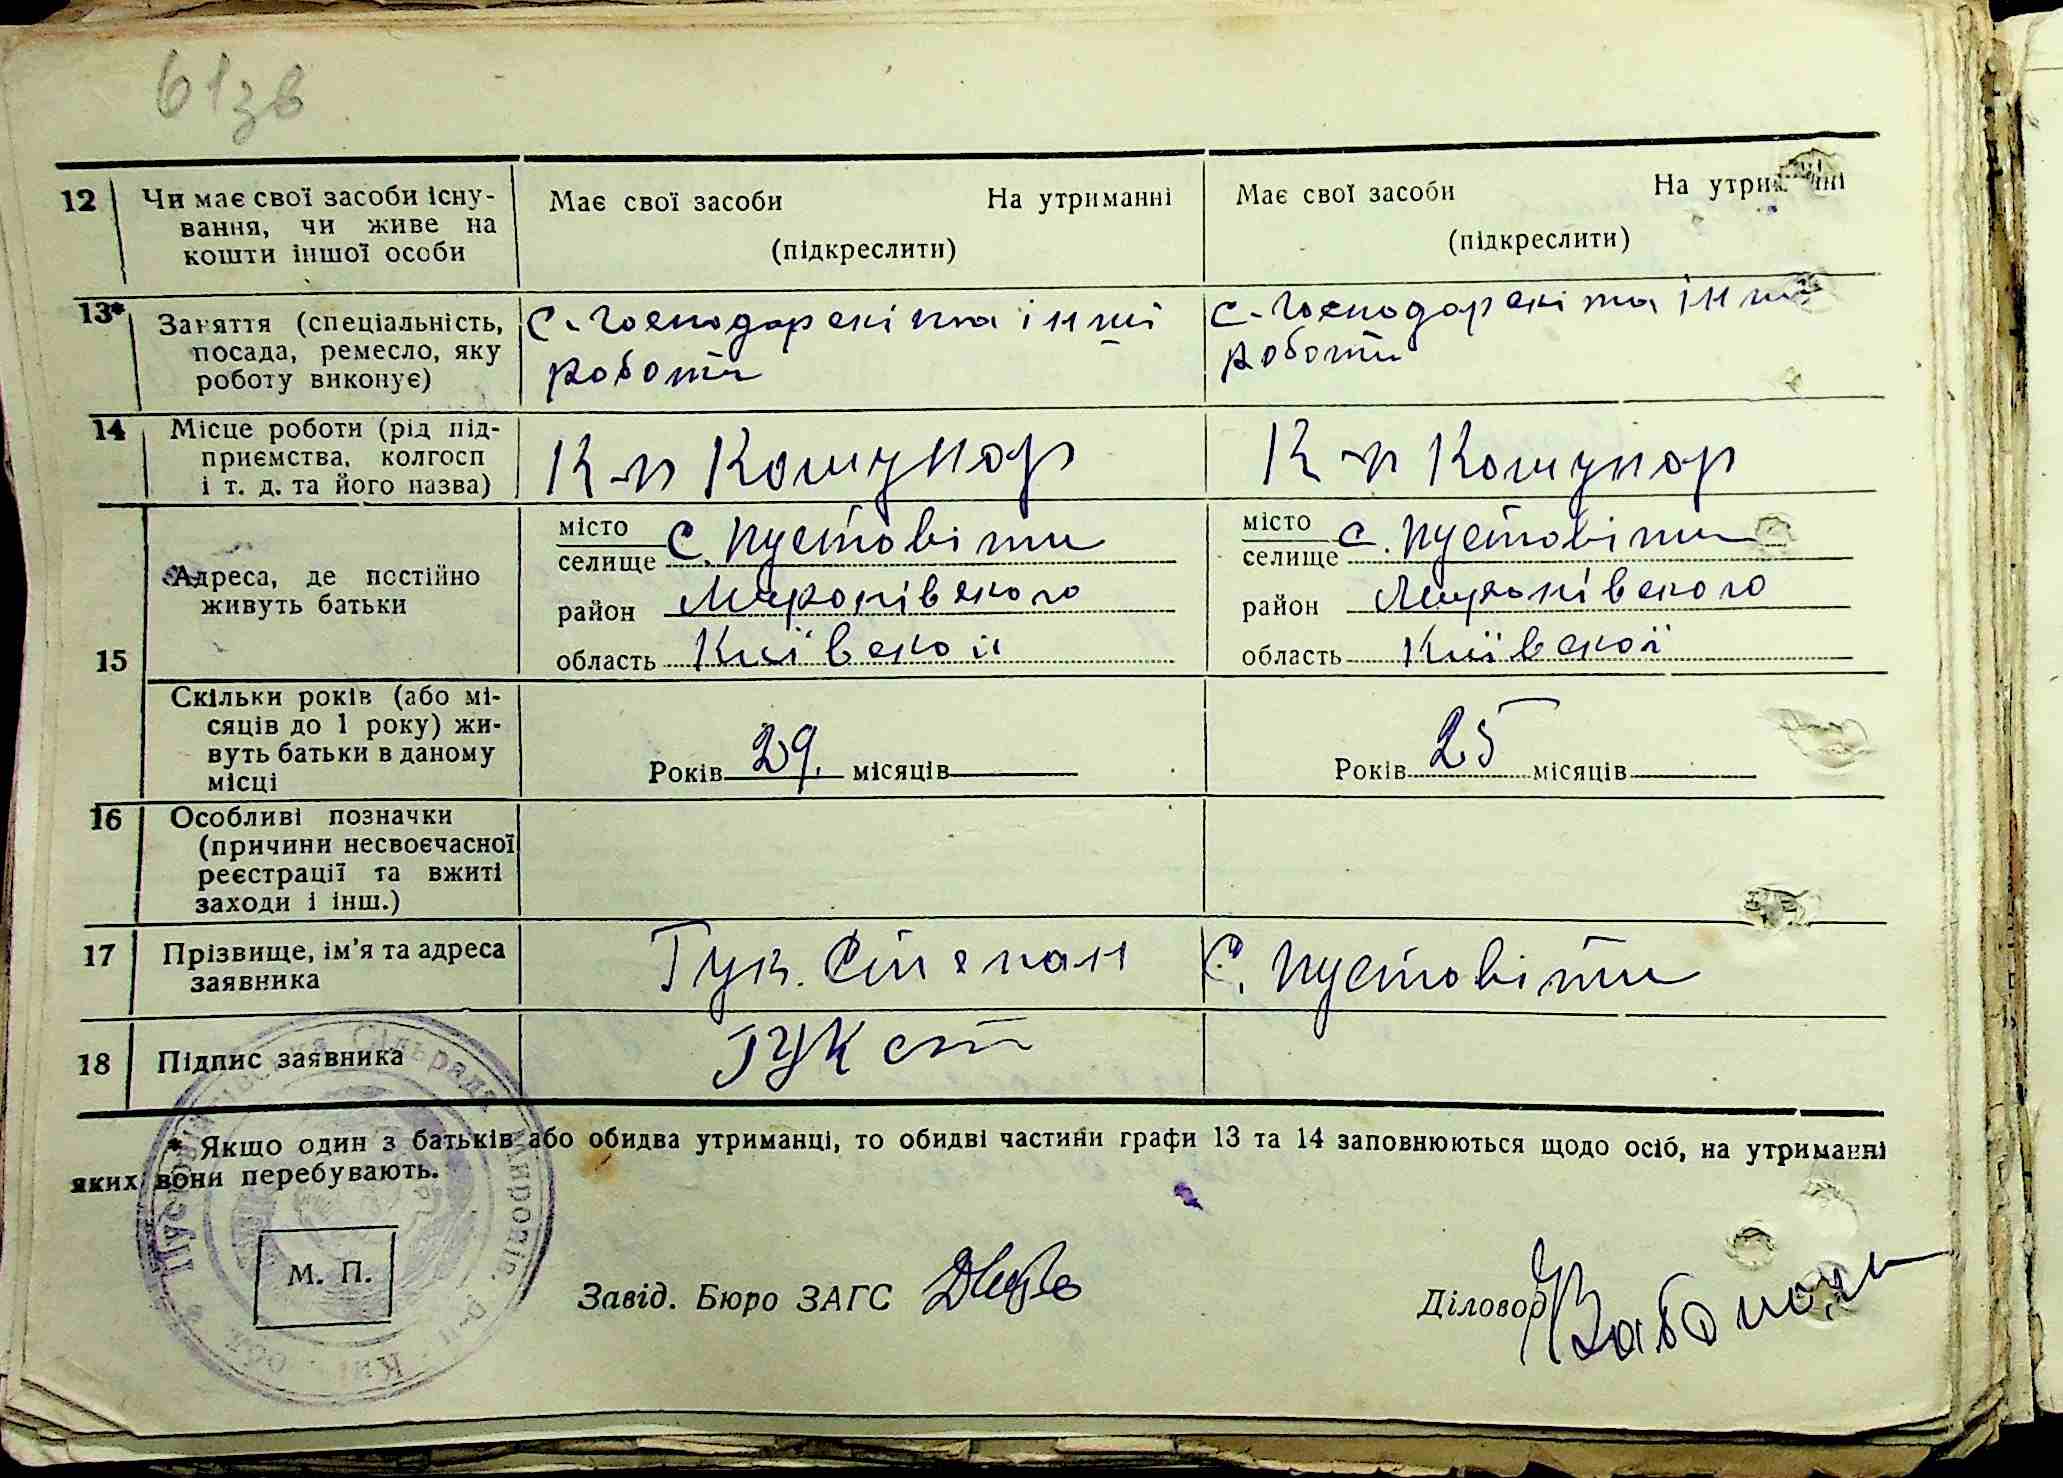 61зв
12 Чи має свої засоби існу-
вання, чи живе на
кошти іншої особи
Має свої засоби На утриманні
(підкреслити)
Має свої засоби На утриманні
(підкреслити)
13* Заняття (спеціальність,
посада, ремесло, яку
роботу виконує)
с-господарскі та інші
роботи
с-господарскі та інші
роботи
14 Місце роботи (рід під-
приємства, колгосп
і т. д. та його назва)
К-п Комунар
К-п Комунар
15 Адреса, де постійно
живуть батьки
місто
селище с. Пустовіти
район Миронівского
область Київскої
місто
селище с. Пустовіти
район Миронівского
область Київскої
Скільки років (або мі-
сяців до 1 року) жи-
вуть батьки в даному
місці
Років 29. місяців
Років 25 місяців
16 Особливі позначки
(причини несвоєчасної
реєстрації та вжиті
заходи і інш.)
17 Прізвище, ім'я та адреса
заявника
Гук. Степан с. Пустовіти
18 Підпис заявника
Гук ст
* Якщо один з батьків або обидва утриманці, то обидві частини графи 13 та 14 заповнюються щодо осіб, на утриманні
яких вони перебувають.
М. П.
Завід. Бюро ЗАГС
Діловод
Пустовітівська Сільрада Миронів. р-н Киї. обл.